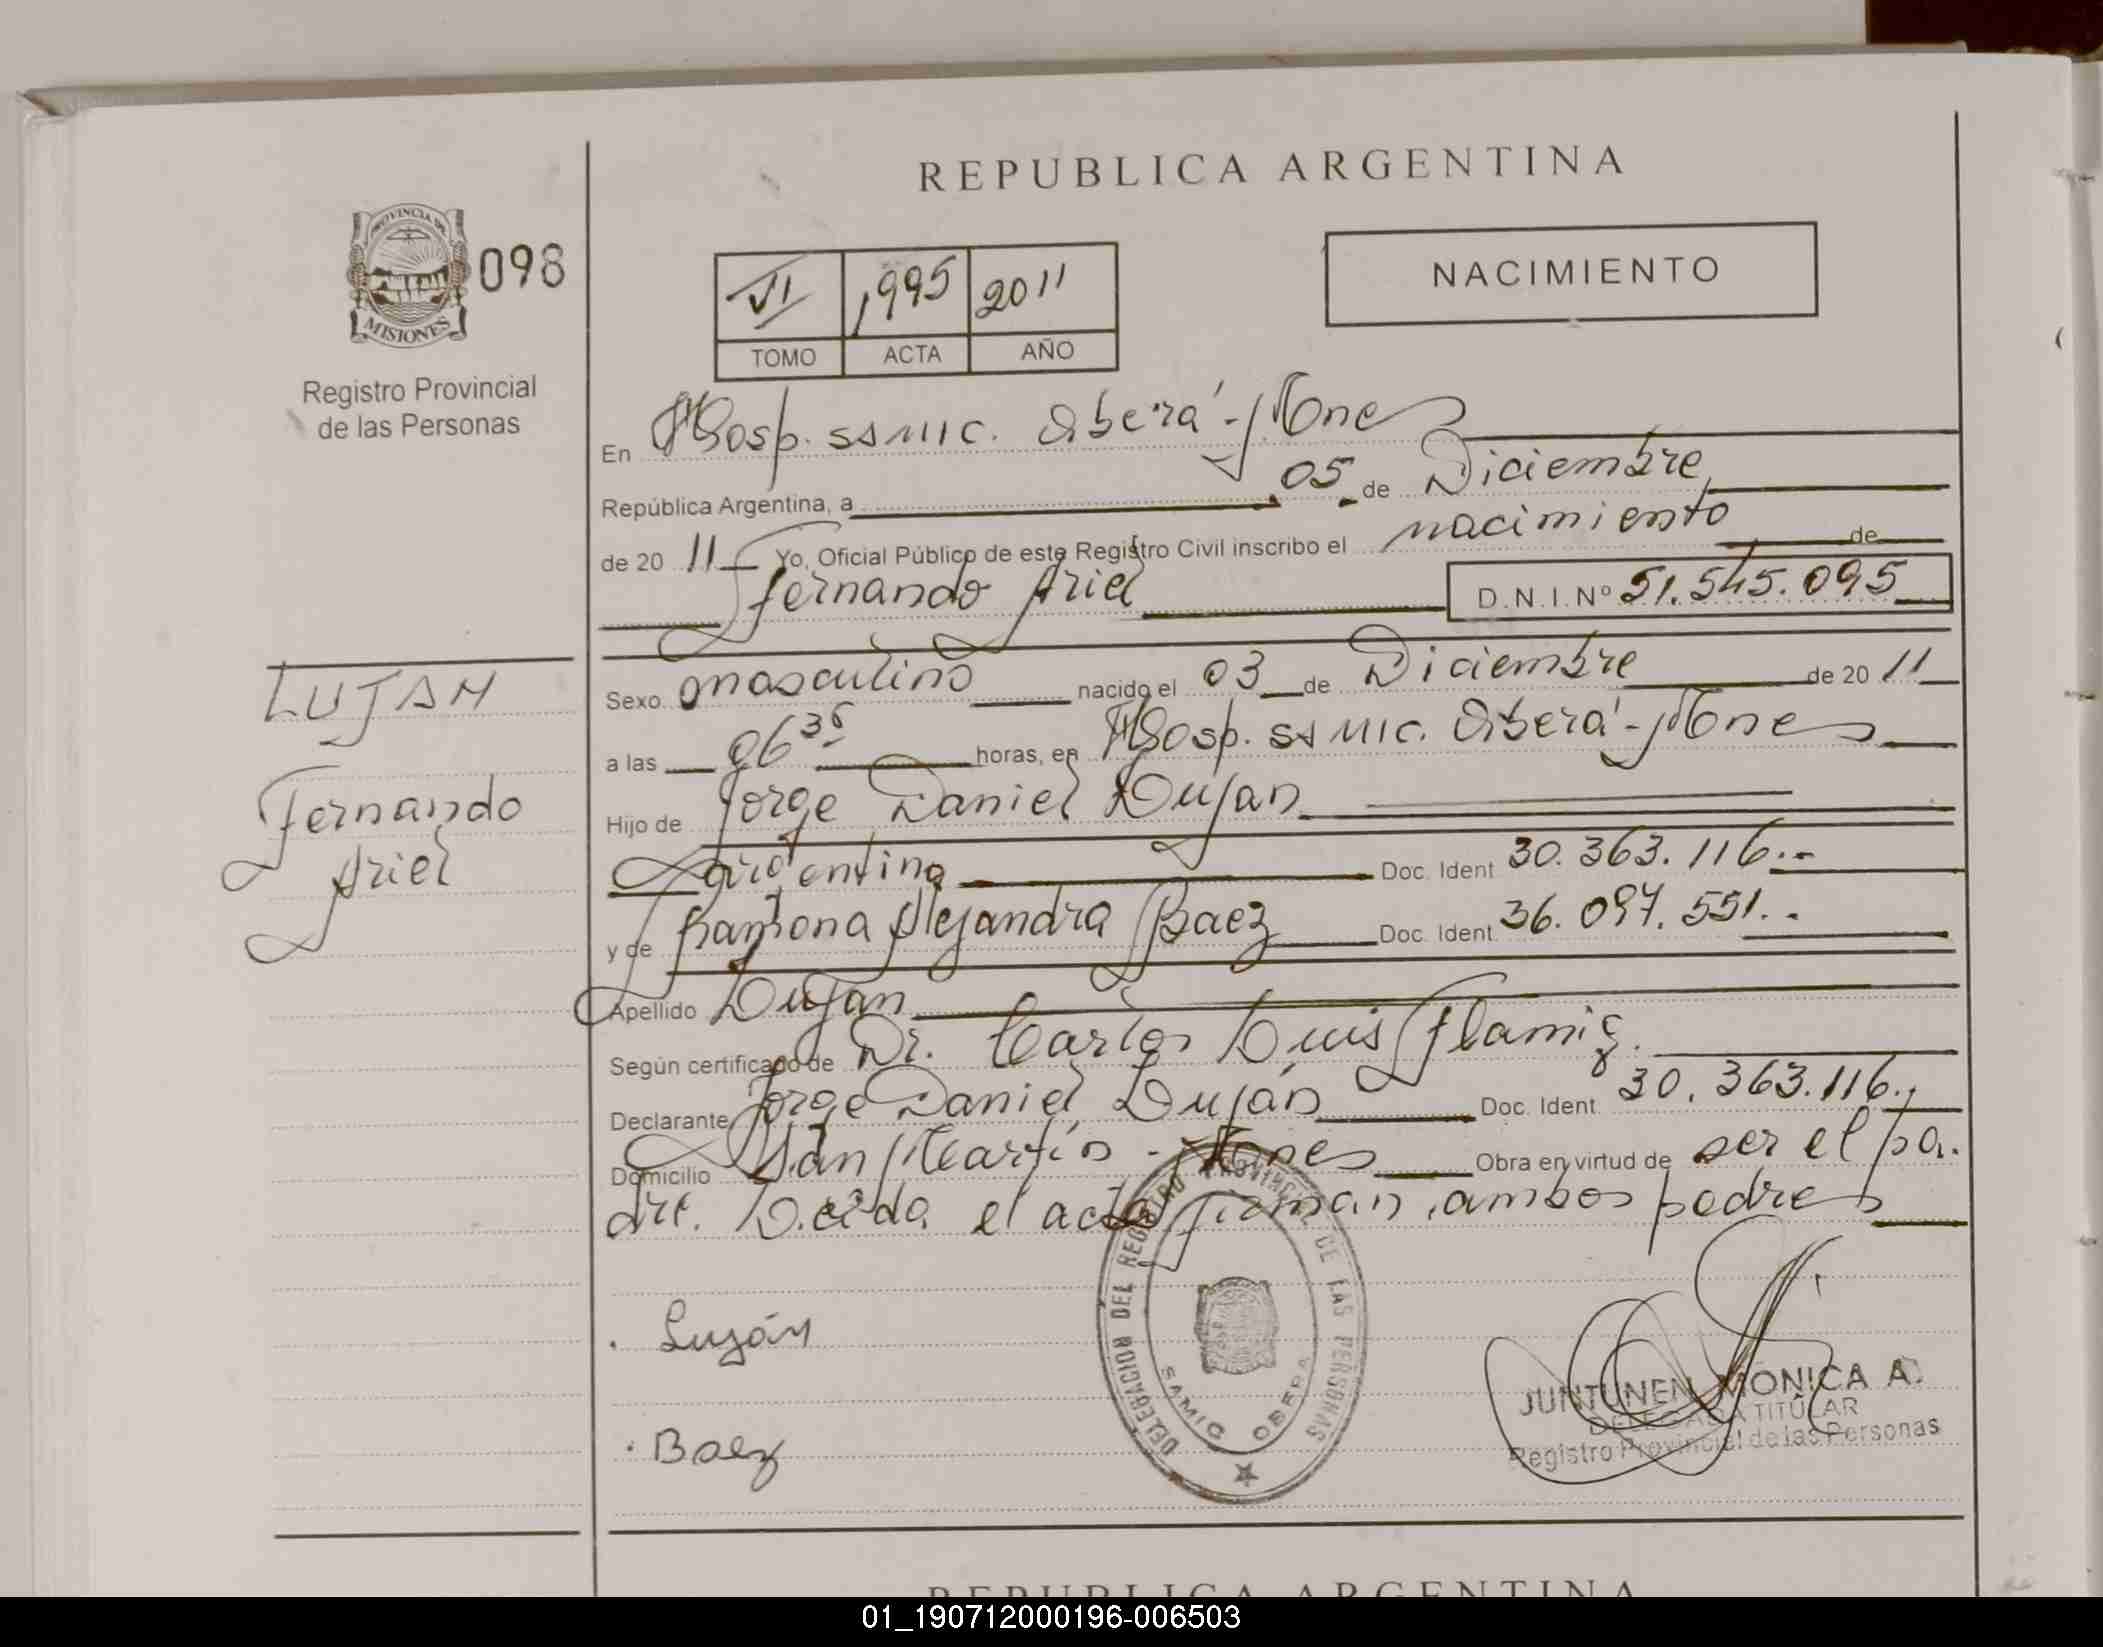 REPUBLICA ARGENTINA
PROVINCIA DE
MISIONES
098
Registro Provincial
de las Personas
VI 1995 2011
TOMO ACTA AÑO
NACIMIENTO
En Hosp. SAMIC. Oberá - Mnes
República Argentina, a 05 de Diciembre
de 20 11 Yo, Oficial Público de este Registro Civil inscribo el nacimiento de
Fernando Ariel D.N.I. Nº 51.545.095
LUJAN
Fernando
Ariel
Sexo masculino nacido el 03 de Diciembre de 20 11
a las 06 35 horas, en Hosp. SAMIC. Oberá - Mnes
Hijo de Jorge Daniel Lujan
argentino Doc. Ident. 30.363.116.-
y de Ramona Alejandra Baez Doc. Ident. 36.097.551.-
Apellido Lujan
Según certificado de Dr. Carlos Luis Flamig.
Declarante Jorge Daniel Luján Doc. Ident. 30.363.116.,
Domicilio San Martín - Mnes Obra en virtud de ser el pa.
dre. Leída el acta firman ambos padres
. Luján
. Baez
DELEGACION DEL REGISTRO PROVINCIAL DE LAS PERSONAS
SAMIC OBERA
JUNTUNEN MONICA A.
DELEGADA TITULAR
Registro Provincial de las Personas
REPUBLICA ARGENTINA
01_190712000196-006503